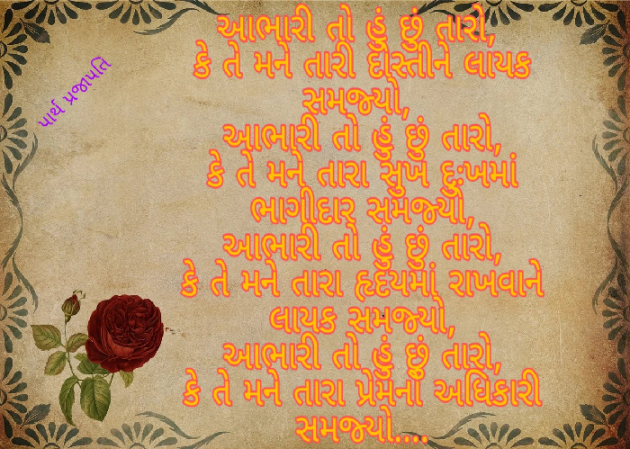 આભારી તો હું છું તારો,
કે તે મને તારી દોસ્તીને લાયક
સમજ્યો,
આભારી તો હું છું તારો,
કે તે મને તારા સુખ દુઃખમાં
ભાગીદાર સમજ્યો,
આભારી તો હું છું તારો,
કે તે મને તારા હૃદયમાં રાખવાને
લાયક સમજ્યો,
આભારી તો હું છું તારો,
કે તે મને તારા પ્રેમનો અધિકારી
સમજ્યો....
પાર્થ પ્રજાપતિ